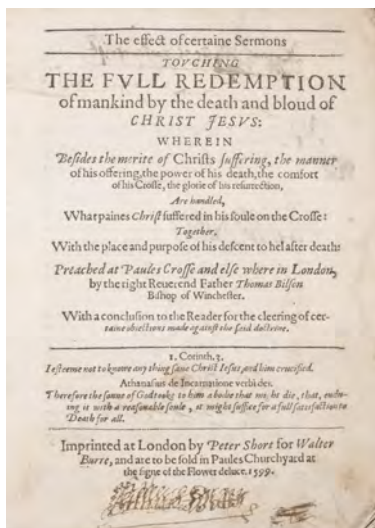 The effect of certaine Sermons
TOVCHING
THE FVLL REDEMPTION
of mankind by the death and bloud of
CHRIST JESVS:
WHEREIN
Besides the merite of Christs suffering, the manner
of his offering, the power of his death, the comfort
of his Crosse, the glorie of his resurrection,
Are handled,
What paines Christ suffered in his soule on the Crosse:
Together,
With the place and purpose of his descent to hel after death:
Preached at Paules Crosse and else where in London,
by the right Reuerend Father Thomas Bilson
Bishop of Winchester.
With a conclusion to the Reader for the cleering of cer-
taine obiections made against the said doctrine.
1. Corinth. 2.
I esteeme not to knowe any thing saue Christ Iesus, and him crucified.
Athanasius de Incarnatione verbi dei.
Therefore the sonne of God tooke to him a bodie that might die, that,
ing it with a reasonable soule, it might suffice for a full satisfaction to
Death for all.
Imprinted at London by Peter Short for Walter
Burre, and are to be sold in Paules Churchyard at
the signe of the Flower deluce. 1599.